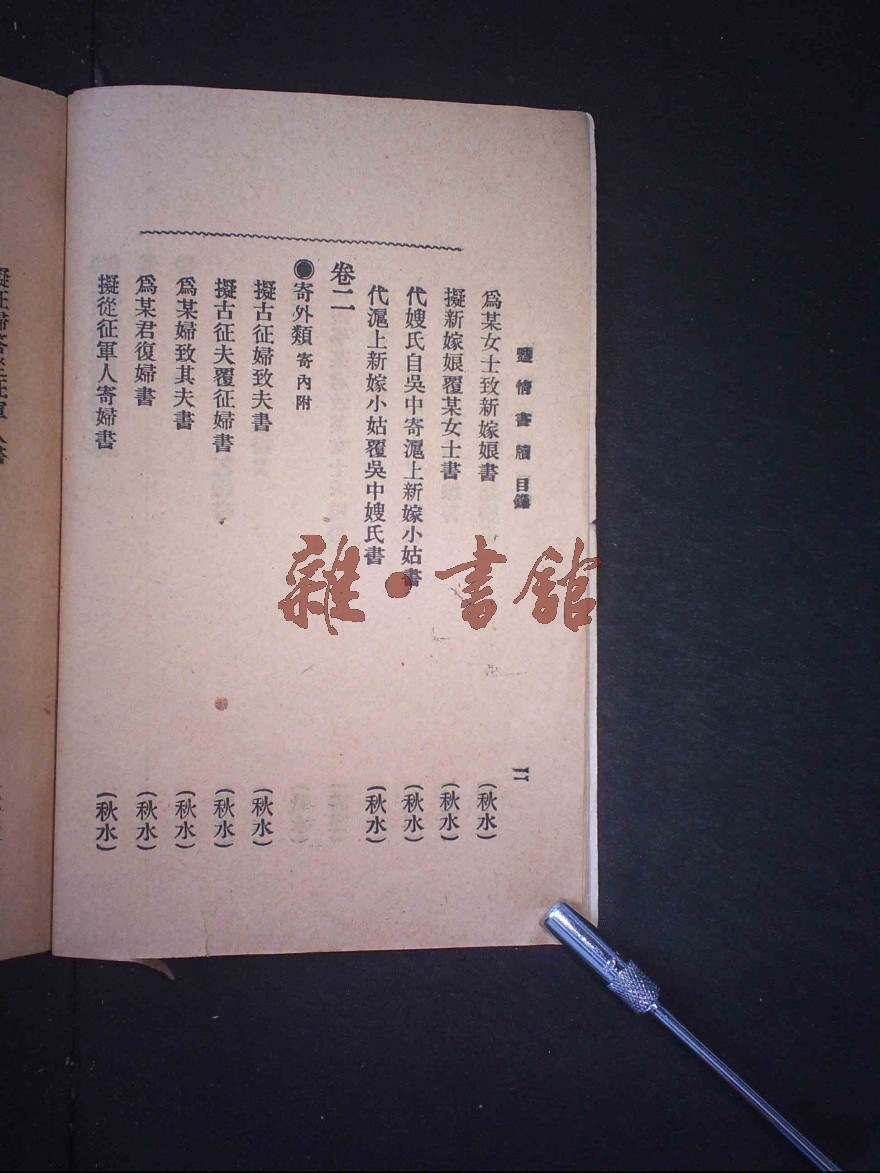 豔情書牘 目錄 二
爲某女士致新嫁娘書 (秋水)
擬新嫁娘覆某女士書 (秋水)
代嫂氏自吳中寄滬上新嫁小姑書 (秋水)
代滬上新嫁小姑覆吳中嫂氏書 (秋水)
卷二
●寄外類 寄內附
擬古征婦致夫書 (秋水)
擬古征夫覆征婦書 (秋水)
爲某婦致其夫書 (秋水)
爲某君復婦書 (秋水)
擬從征軍人寄婦書 (秋水)
雜·書館